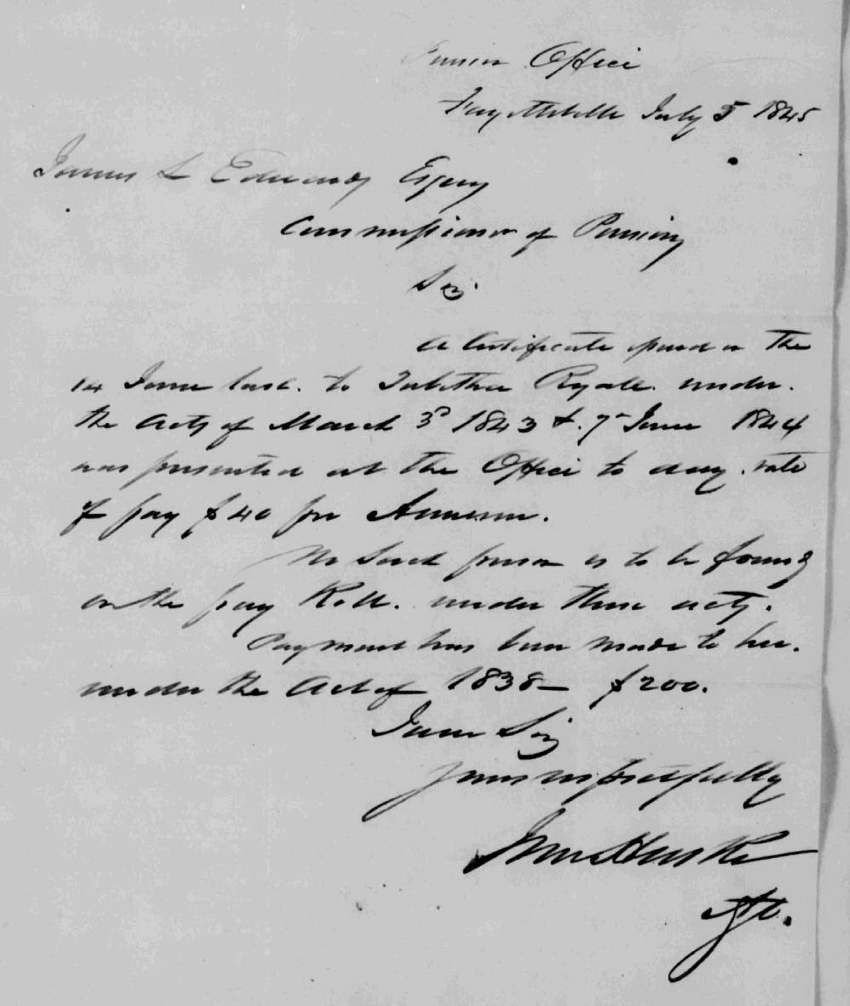 Pension Office
Fayetteville July 5 1845
James L Edwards Esqr
Commissioner of Pensions
Sir
A Certificate issued on the
14 June last. to Tabitha Ryale. under.
the Acts of March 3d 1843 & 7 June 1844
was presented at the Office to day. rate
of pay $40 per Annum.
No Such person is to be found
on the pay Roll. under these acts.
Payment has been made to her.
under the Act of 1838 – $200.
I am Sir
yours respectfully
Jno Huske
Agt.